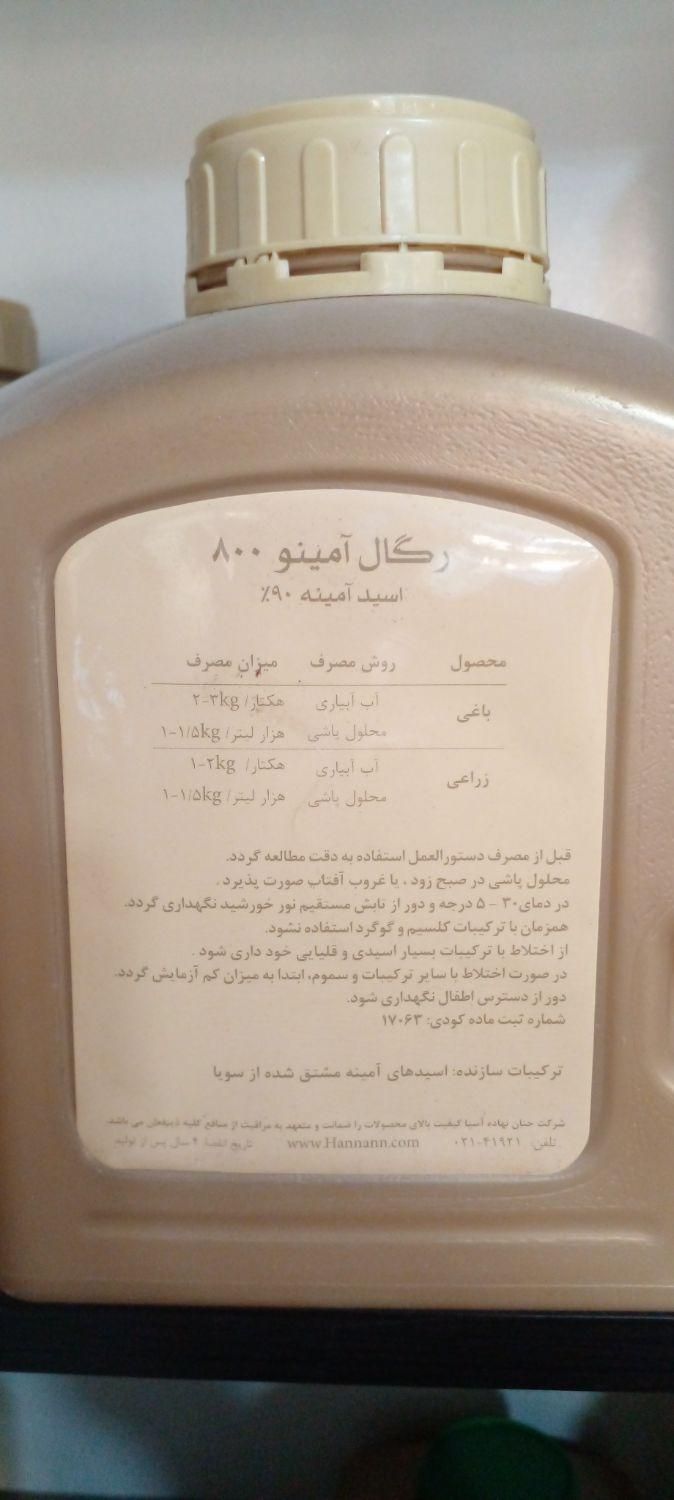 رگال آمینو ۸۰۰
اسید آمینه ۹۰٪
محصول روش مصرف میزان مصرف
باغی
آب آبیاری هکتار/ ۲-۳kg
محلول پاشی هزار لیتر/ ۱-۱/۵kg
زراعی
آب آبیاری هکتار/ ۱-۲kg
محلول پاشی هزار لیتر/ ۱-۱/۵kg
قبل از مصرف دستورالعمل استفاده به دقت مطالعه گردد.
محلول پاشی در صبح زود ، یا غروب آفتاب صورت پذیرد .
در دمای۳۰ - ۵ درجه و دور از تابش مستقیم نور خورشید نگهداری گردد.
همزمان با ترکیبات کلسیم و گوگرد استفاده نشود.
از اختلاط با ترکیبات بسیار اسیدی و قلیایی خود داری شود .
در صورت اختلاط با سایر ترکیبات و سموم، ابتدا به میزان کم آزمایش گردد.
دور از دسترس اطفال نگهداری شود.
شماره ثبت ماده کودی: ۱۷۰۶۳
ترکیبات سازنده: اسیدهای آمینه مشتق شده از سویا
شرکت حنان نهاده آسیا کیفیت بالای محصولات را ضمانت و متعهد به مراقبت از منافع کلیه ذینفعان می باشد.
تلفن: ۴۱۹۲۱-۰۲۱ www.Hannann.com تاریخ انقضا: ۴ سال پس از تولید